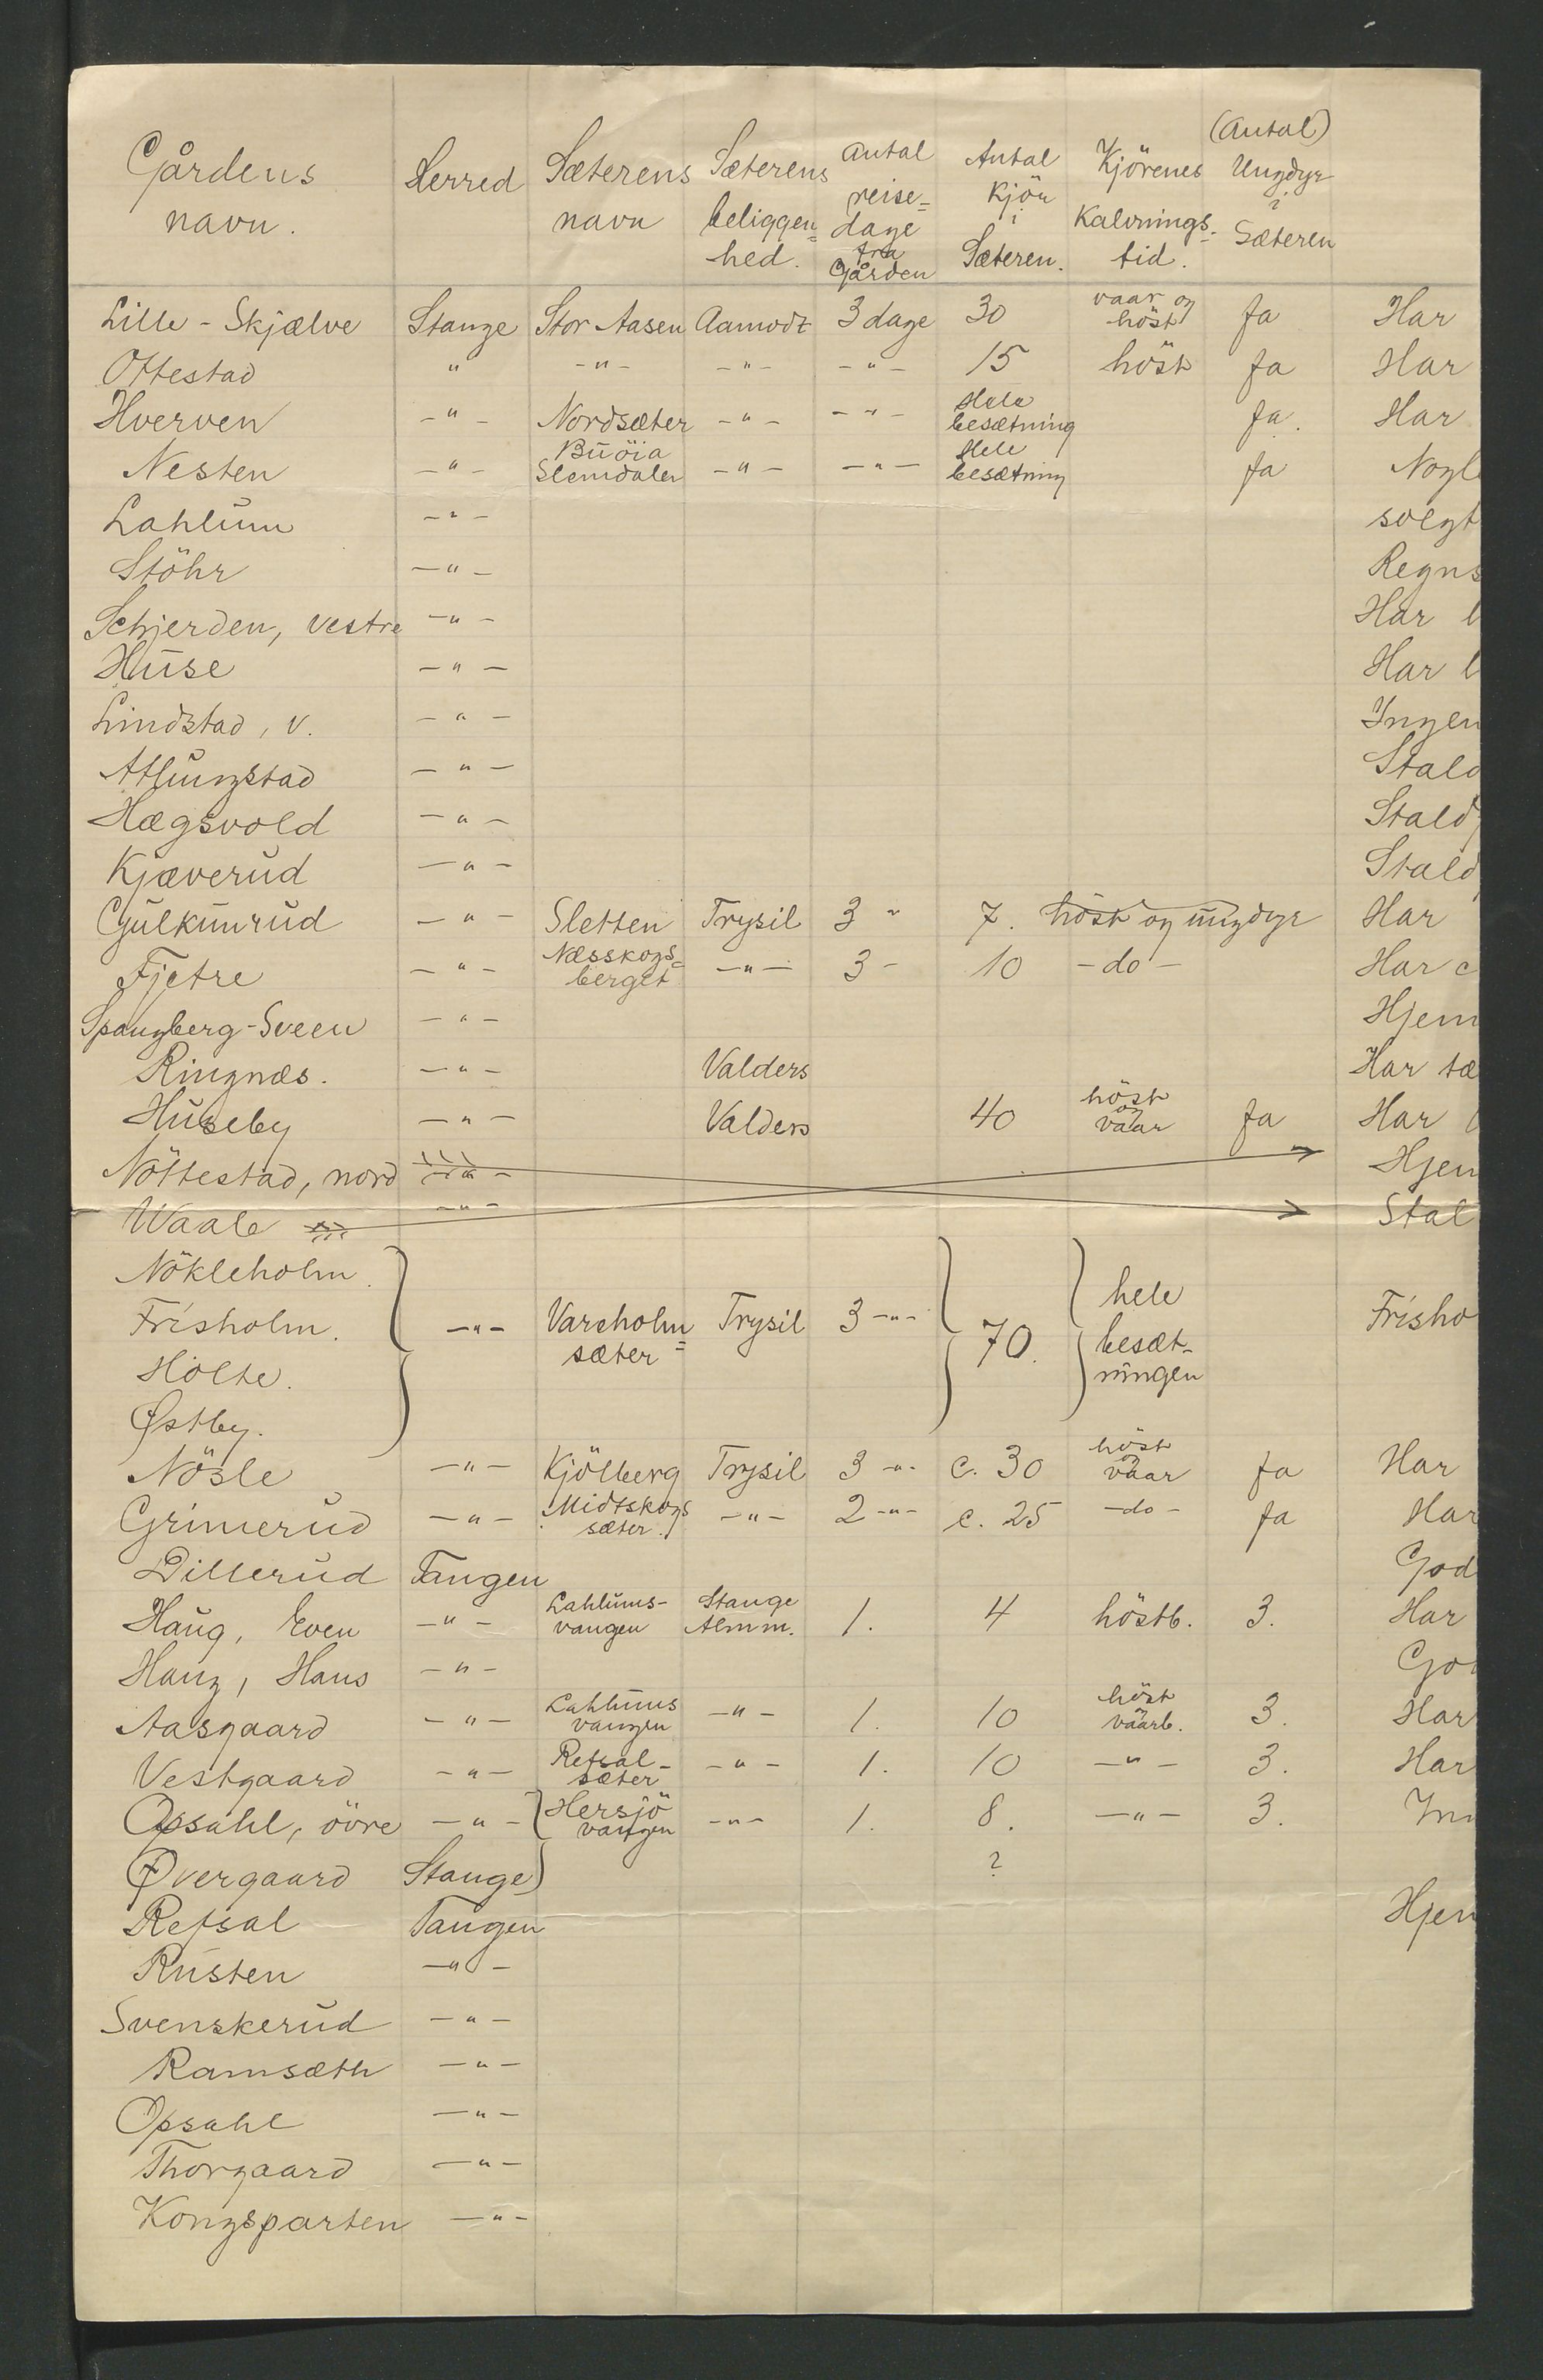 Gårdens navn. Herred Sæterens navn Sæterens beliggenhed. Antal reisedage fra Gården Antal Kjör i Sæteren. Kjörenes Kalvningstid. (Antal) Ungdyr i Sæteren
Lille-Skjælve Stange Stor Aasen Aamodt 3 dage 30 vaar og höst Ja Har
Ottestad " -"- -"- -"- 15 höst Ja Har
Hverven -"- Nordsæter -"- -"- Hele besætning Ja. Har
Nesten -"- Buöia Slemdalen -"- -"- Hele besætning Ja Nogl
Lahlum -"- solgt
Stöhr -"- Regns
Schjerden, vestre -"- Har l
Huse -"- Har l
Lindstad, v. -"- Ingen
Atlungstad -"- Stald
Hægsvold -"- Stald
Kjæverud -"- Stald
Gulkunrud -"- Sletten Trysil 3 " 7. höst og ungdyr Har
Fjetre -"- Næsskogsberget -"- 3 - 10 -do- Har c
Spangberg-Sveen -"- Hjem
Ringnæs. -"- Valders Har sæ
Huseby -"- Valders 40 höst og vaar Ja Har
Nöttestad, nord -"- Hjem
Waale -"- Stal
Nökleholm.
Frisholm. -"- Vareholmsæter Trysil 3 -"- 70. hele besætningen Frisho
Holte.
Østby.
Nösle -"- Kjölberg Trysil 3 -"- c. 30 höst og vaar Ja Har
Grimerud -"- Midtskogssæter. -"- 2 -"- c. 25 -do- Ja Har
Dillerud Tangen God
Haug, Even -"- Lahlumsvangen Stange Almm. 1. 4 höstb. 3. Har
Haug, Hans -"- God
Aasgaard -"- Lahlumsvangen -"- 1. 10 höst vaarb. 3. Har
Vestgaard -"- Refsalsæter -"- 1. 10 -"- 3. Har
Opsahl, övre -"- Hersjövangen -"- 1. 8. -"- 3. Inn
Øvergaard Stange ?
Refsal Tangen Hjem
Rusten -"-
Svenskerud -"-
Ramsæth -"-
Opsahl -"-
Thorgaard -"-
Kongsparten -"-